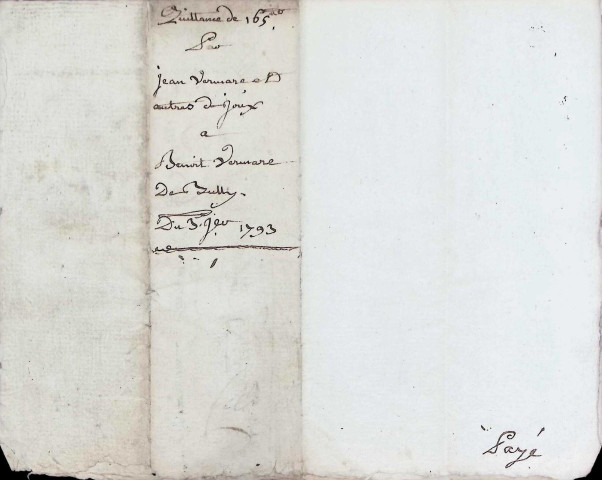 Quittance de 165ˡˡ
Par
jean Vermare et
autres de joux
a
Benoit Vermare
De Bully.
Du 3. Jer 1793
Payé